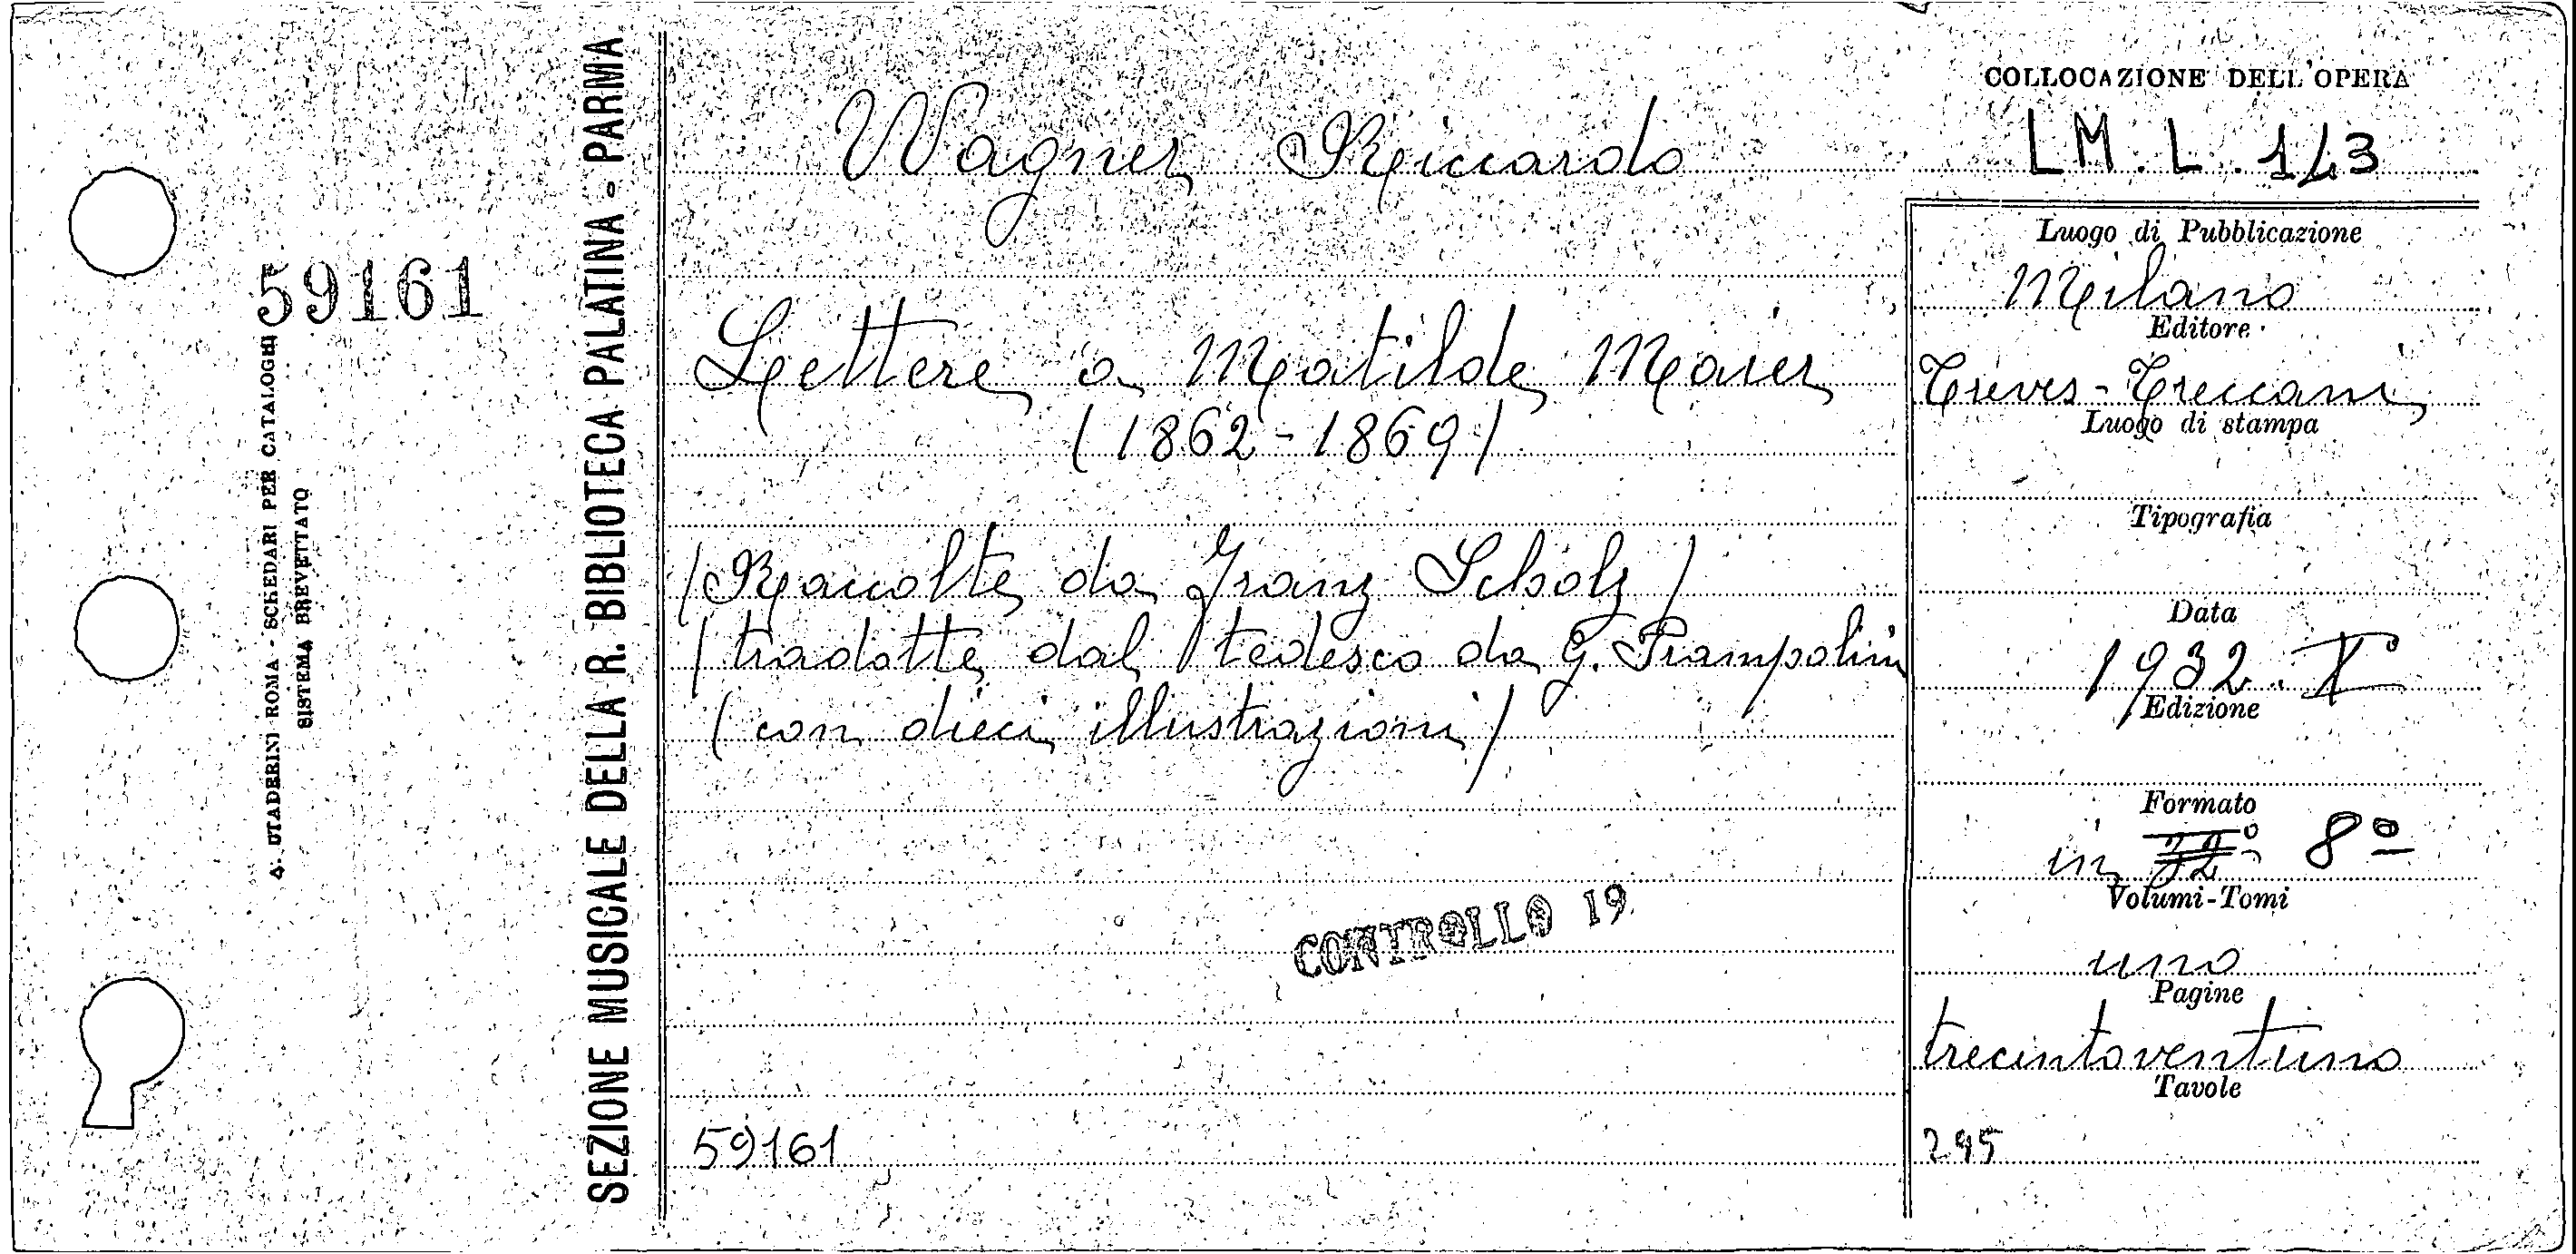 COLLOCAZIONE DELL'OPERA
Wagner Riccardo
LM. L. 143
59161
SEZIONE MUSICALE DELLA R. BIBLIOTECA PALATINA - PARMA
SCHEDARI PER CATALOGHI
SISTEMA BREVETTATO
Lettere a Matilde Maier
(1862-1869)
(Raccolte da Franz Scholz)
(tradotte dal tedesco da G. Prampolini
(con dieci illustrazioni)
CONTROLLO 19
59161
Luogo di Pubblicazione
Milano
Editore
Treves-Treccani
Luogo di stampa
Tipografia
Data
1932. X°
Edizione
Formato
in 32° 8º
Volumi-Tomi
uno
Pagine
trecentoventuno
Tavole
295